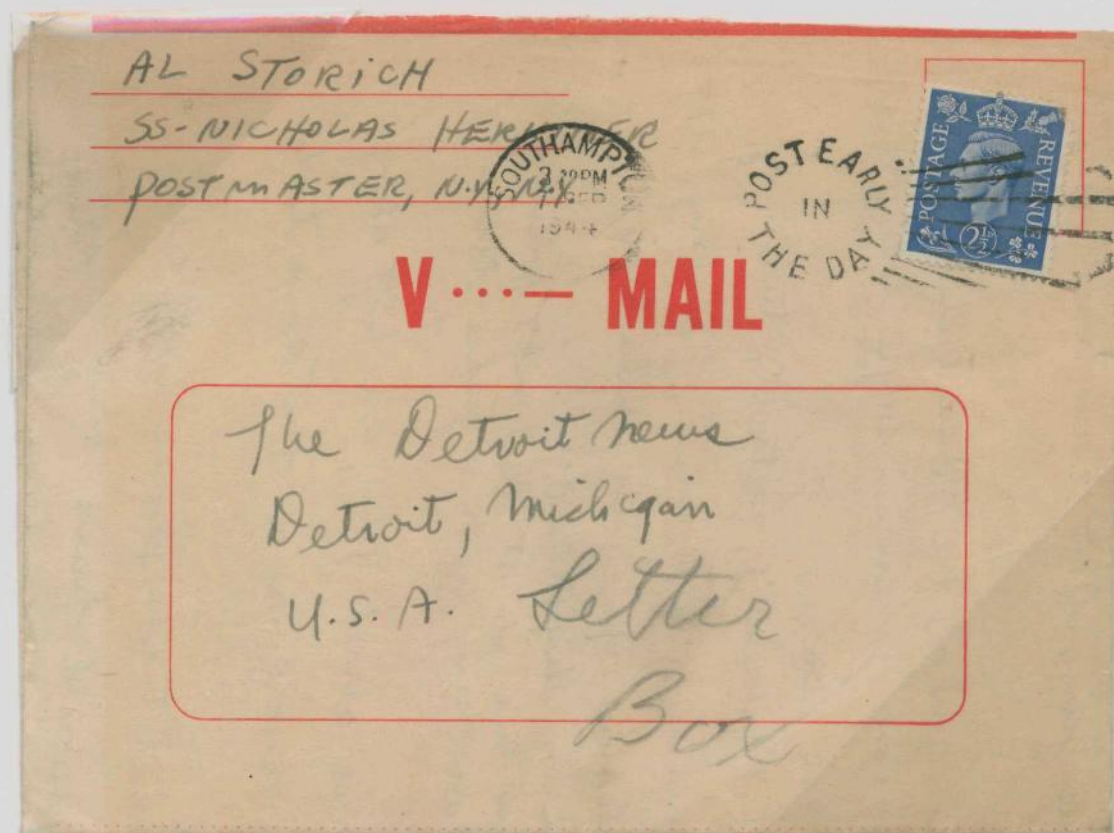 AL STORICH
SS-NICHOLAS HERKIMER
POSTMASTER, N.Y. N.Y.
SOUTHAMPTON
PM
1944
POST EARLY
IN
THE DAY
POSTAGE
REVENUE
2½
V ···— MAIL
The Detroit News
Detroit, Michigan
U.S.A. Letter
Box